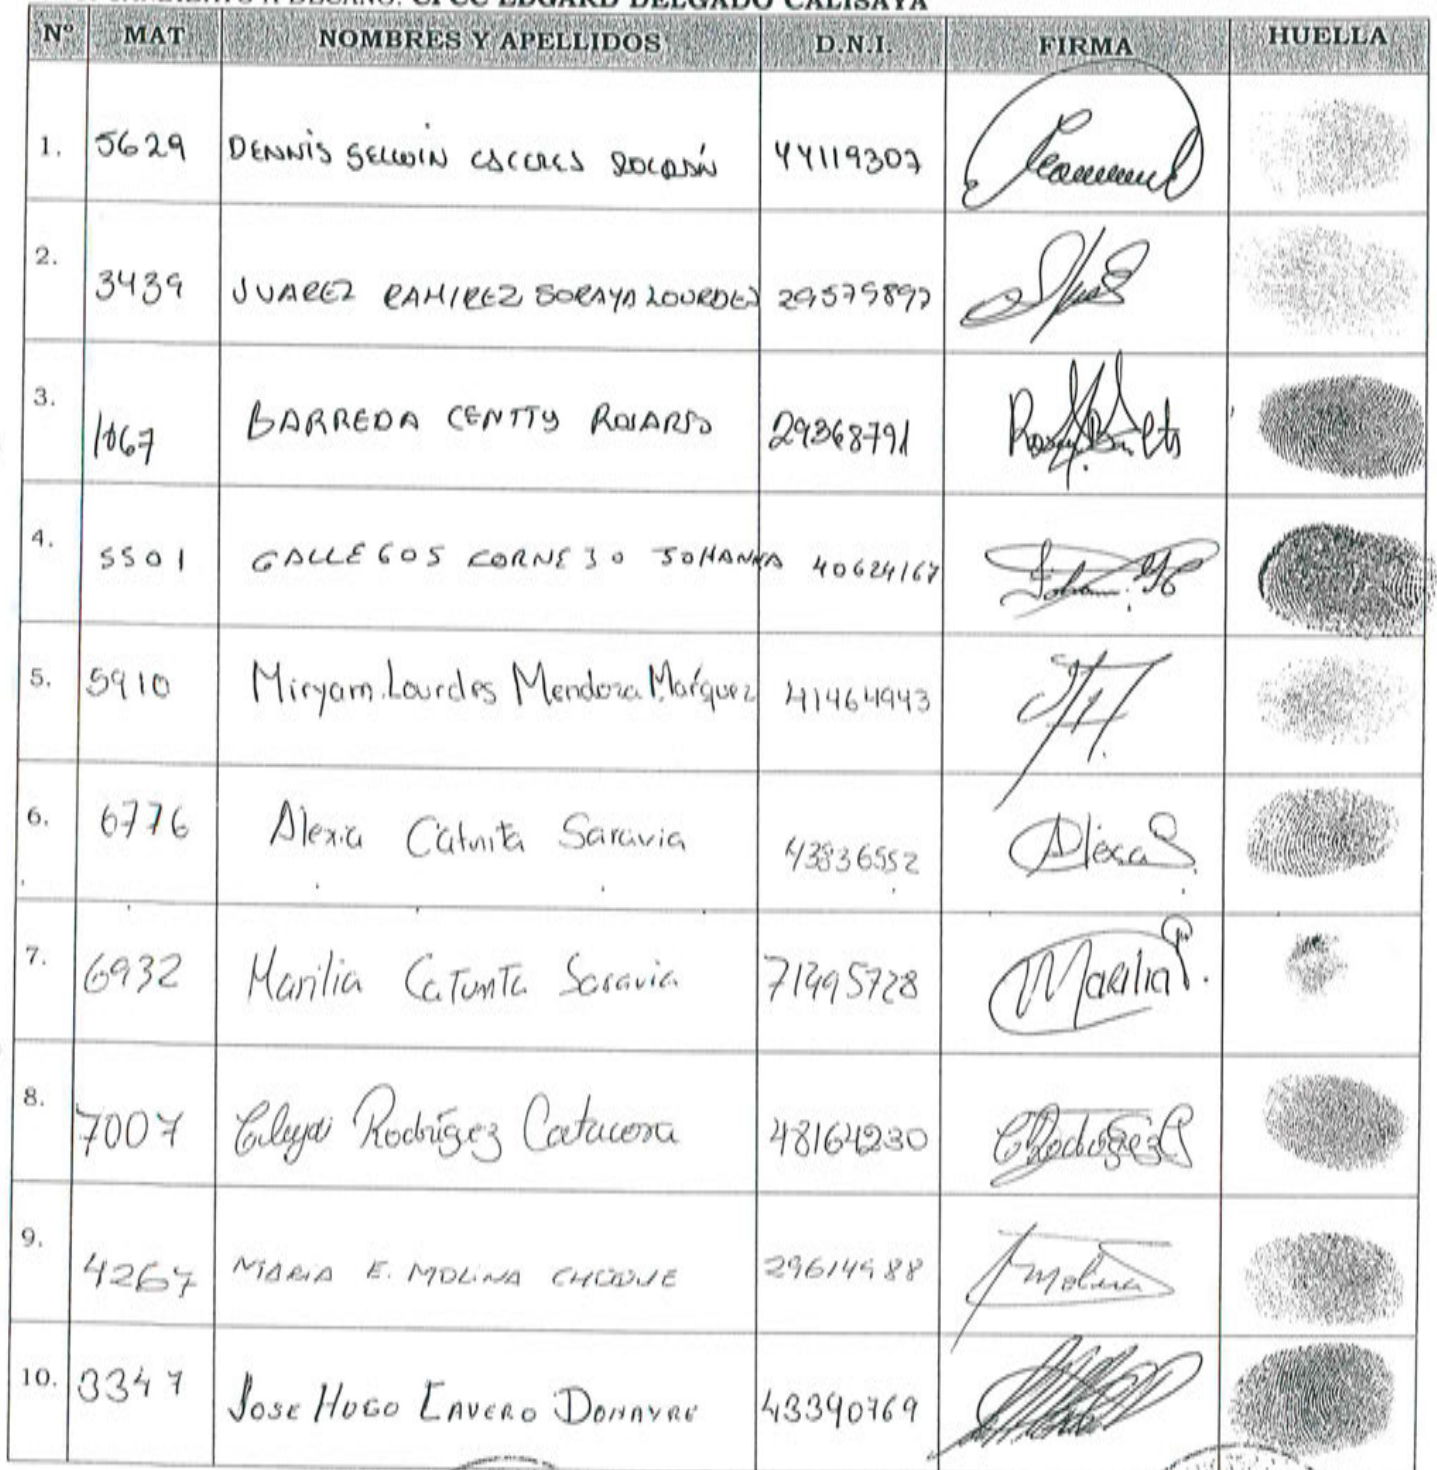 CPCC EDGARD DELGADO CALISAYA
Nº MAT NOMBRES Y APELLIDOS D.N.I. FIRMA HUELLA
1. 5629 DENNIS 44119307
2. 3439 JUAREZ RAMIREZ SORAYA LOURDES 29579897
3. 1067 BARREDA CENTTY ROSARIO 29368791
4. 5501 GALLEGOS CORNEJO JOHANNA 40624167
5. 5910 Miryam Lourdes Mendoza Márquez 41464943
6. 6776 Alexia Catunta Saravia 43836552 Alexa
7. 6932 Marilia Catunta Saravia 71495728 Marilia
8. 7007 Rodríguez Catacora 48164230
9. 4267 MARIA E. MOLINA CHOQUE 29614988 Molina
10. 3347 JOSE HUGO CAVERO DONAYRE 43390769